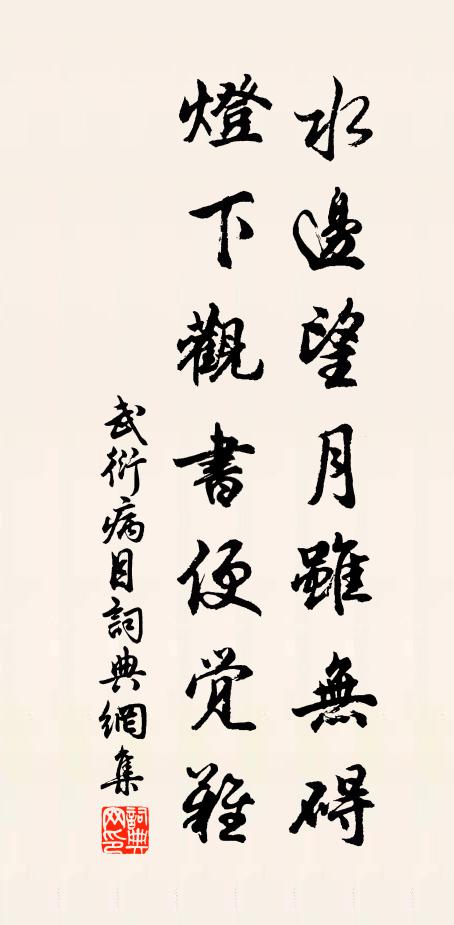 水邊望月雖無碍
燈下觀書便觉難
武衍病目詞典網集
詞典网印